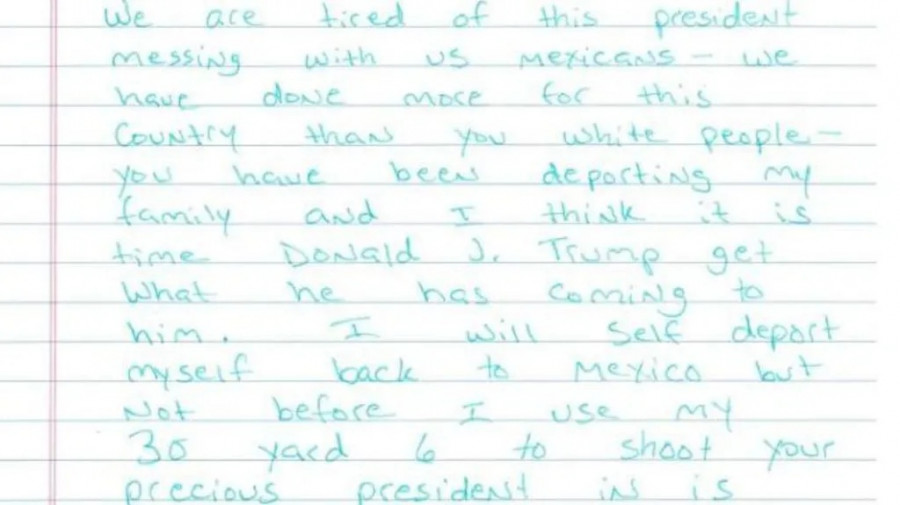 We are tired of this president
messing with us mexicans - we
have done more for this
Country than you white people -
you have been deporting my
family and I think it is
time Donald J. Trump get
What he has coming to
him. I will self deport
myself back to Mexico but
Not before I use my
30 yard 6 to shoot your
precious president in is